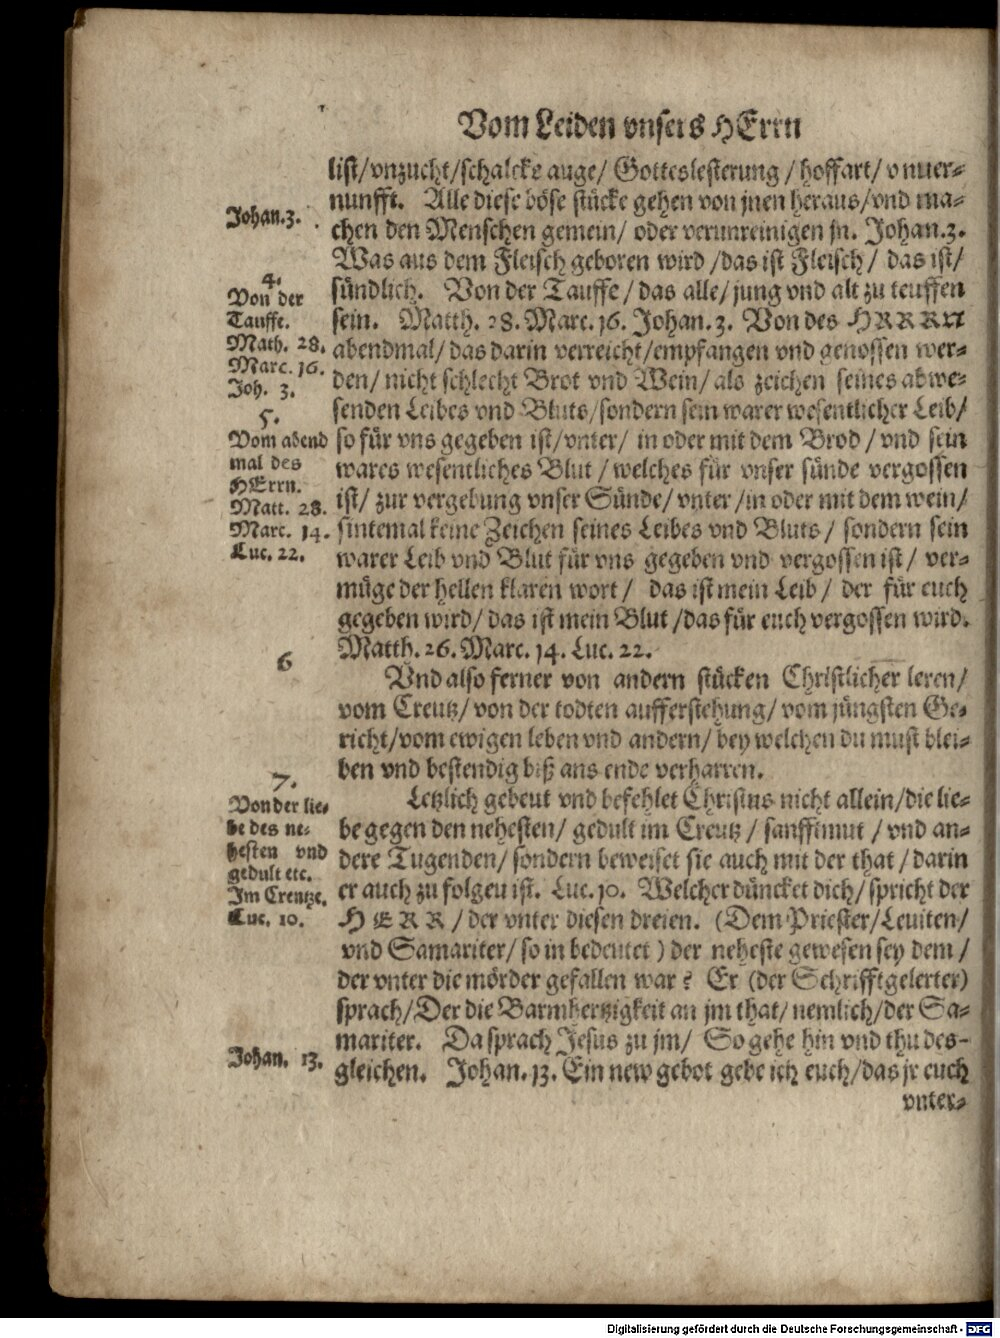 Vom Leiden vnsers HErrn
list/vnzucht/schalcke auge/ Gotteslesterung / hoffart/ vnuer-
nunfft. Alle diese böse stücke gehen von jnen heraus/vnd ma-
Johan.3.
chen den Menschen gemein/ oder verunreinigen jn. Johan.3.
Was aus dem Fleisch geboren wird /das ist Fleisch/ das ist/
4.
Von der
Tauffe.
Math. 28.
Marc. 16.
Joh. 3.
sündlich. Von der Tauffe / das alle/ jung vnd alt zu teuffen
sein. Matth. 28. Marc. 16. Johan. 3. Von des HERRN
abendmal/ das darin verreicht/empfangen vnd genossen wer-
den/ nicht schlecht Brot vnd Wein/ als zeichen seines abwe-
5.
Vom abend
mal des
HErrn.
Matt. 28.
Marc. 14.
Luc. 22.
senden Leibes vnd Bluts/sondern sein warer wesentlicher Leib/
so für vns gegeben ist/vnter/ in oder mit dem Brod / vnd sein
wares wesentliches Blut / welches für vnser sünde vergossen
ist/ zur vergebung vnser Sünde/ vnter /in oder mit dem wein/
sintemal keine Zeichen seines Leibes vnd Bluts / sondern sein
warer Leib vnd Blut für vns gegeben vnd vergossen ist / ver-
müge der hellen klaren wort / das ist mein Leib / der für euch
gegeben wird/ das ist mein Blut /das für euch vergossen wird.
Matth. 26. Marc. 14. Luc. 22.
6
Vnd also ferner von andern stücken Christlicher leren/
vom Creutz/ von der todten aufferstehung/ vom jüngsten Ge-
richt/vom ewigen leben vnd andern/ bey welchen du must blei-
ben vnd bestendig biß ans ende verharren.
7.
Von der lie-
be des ne-
hesten vnd
gedult etc.
Im Creutze.
Luc. 10.
Letzlich gebeut vnd befehlet Christus nicht allein/die lie-
be gegen den nehesten/ gedult im Creutz / sanfftmut / vnd an-
dere Tugenden/ sondern beweiset sie auch mit der that / darin
er auch zu folgen ist. Luc. 10. Welcher düncket dich/ spricht der
HERR / der vnter diesen dreien. (Dem Priester/Leuiten/
vnd Samariter/ so in bedeutet ) der neheste gewesen sey dem /
der vnter die mörder gefallen war ? Er (der Schrifftgelerter)
sprach/Der die Barmhertzigkeit an jm that/ nemlich/der Sa-
mariter. Da sprach Jesus zu jm/ So gehe hin vnd thu des-
Johan. 13.
gleichen. Johan. 13. Ein new gebot gebe ich euch/das jr euch
vnter-
Digitalisierung gefördert durch die Deutsche Forschungsgemeinschaft - DFG